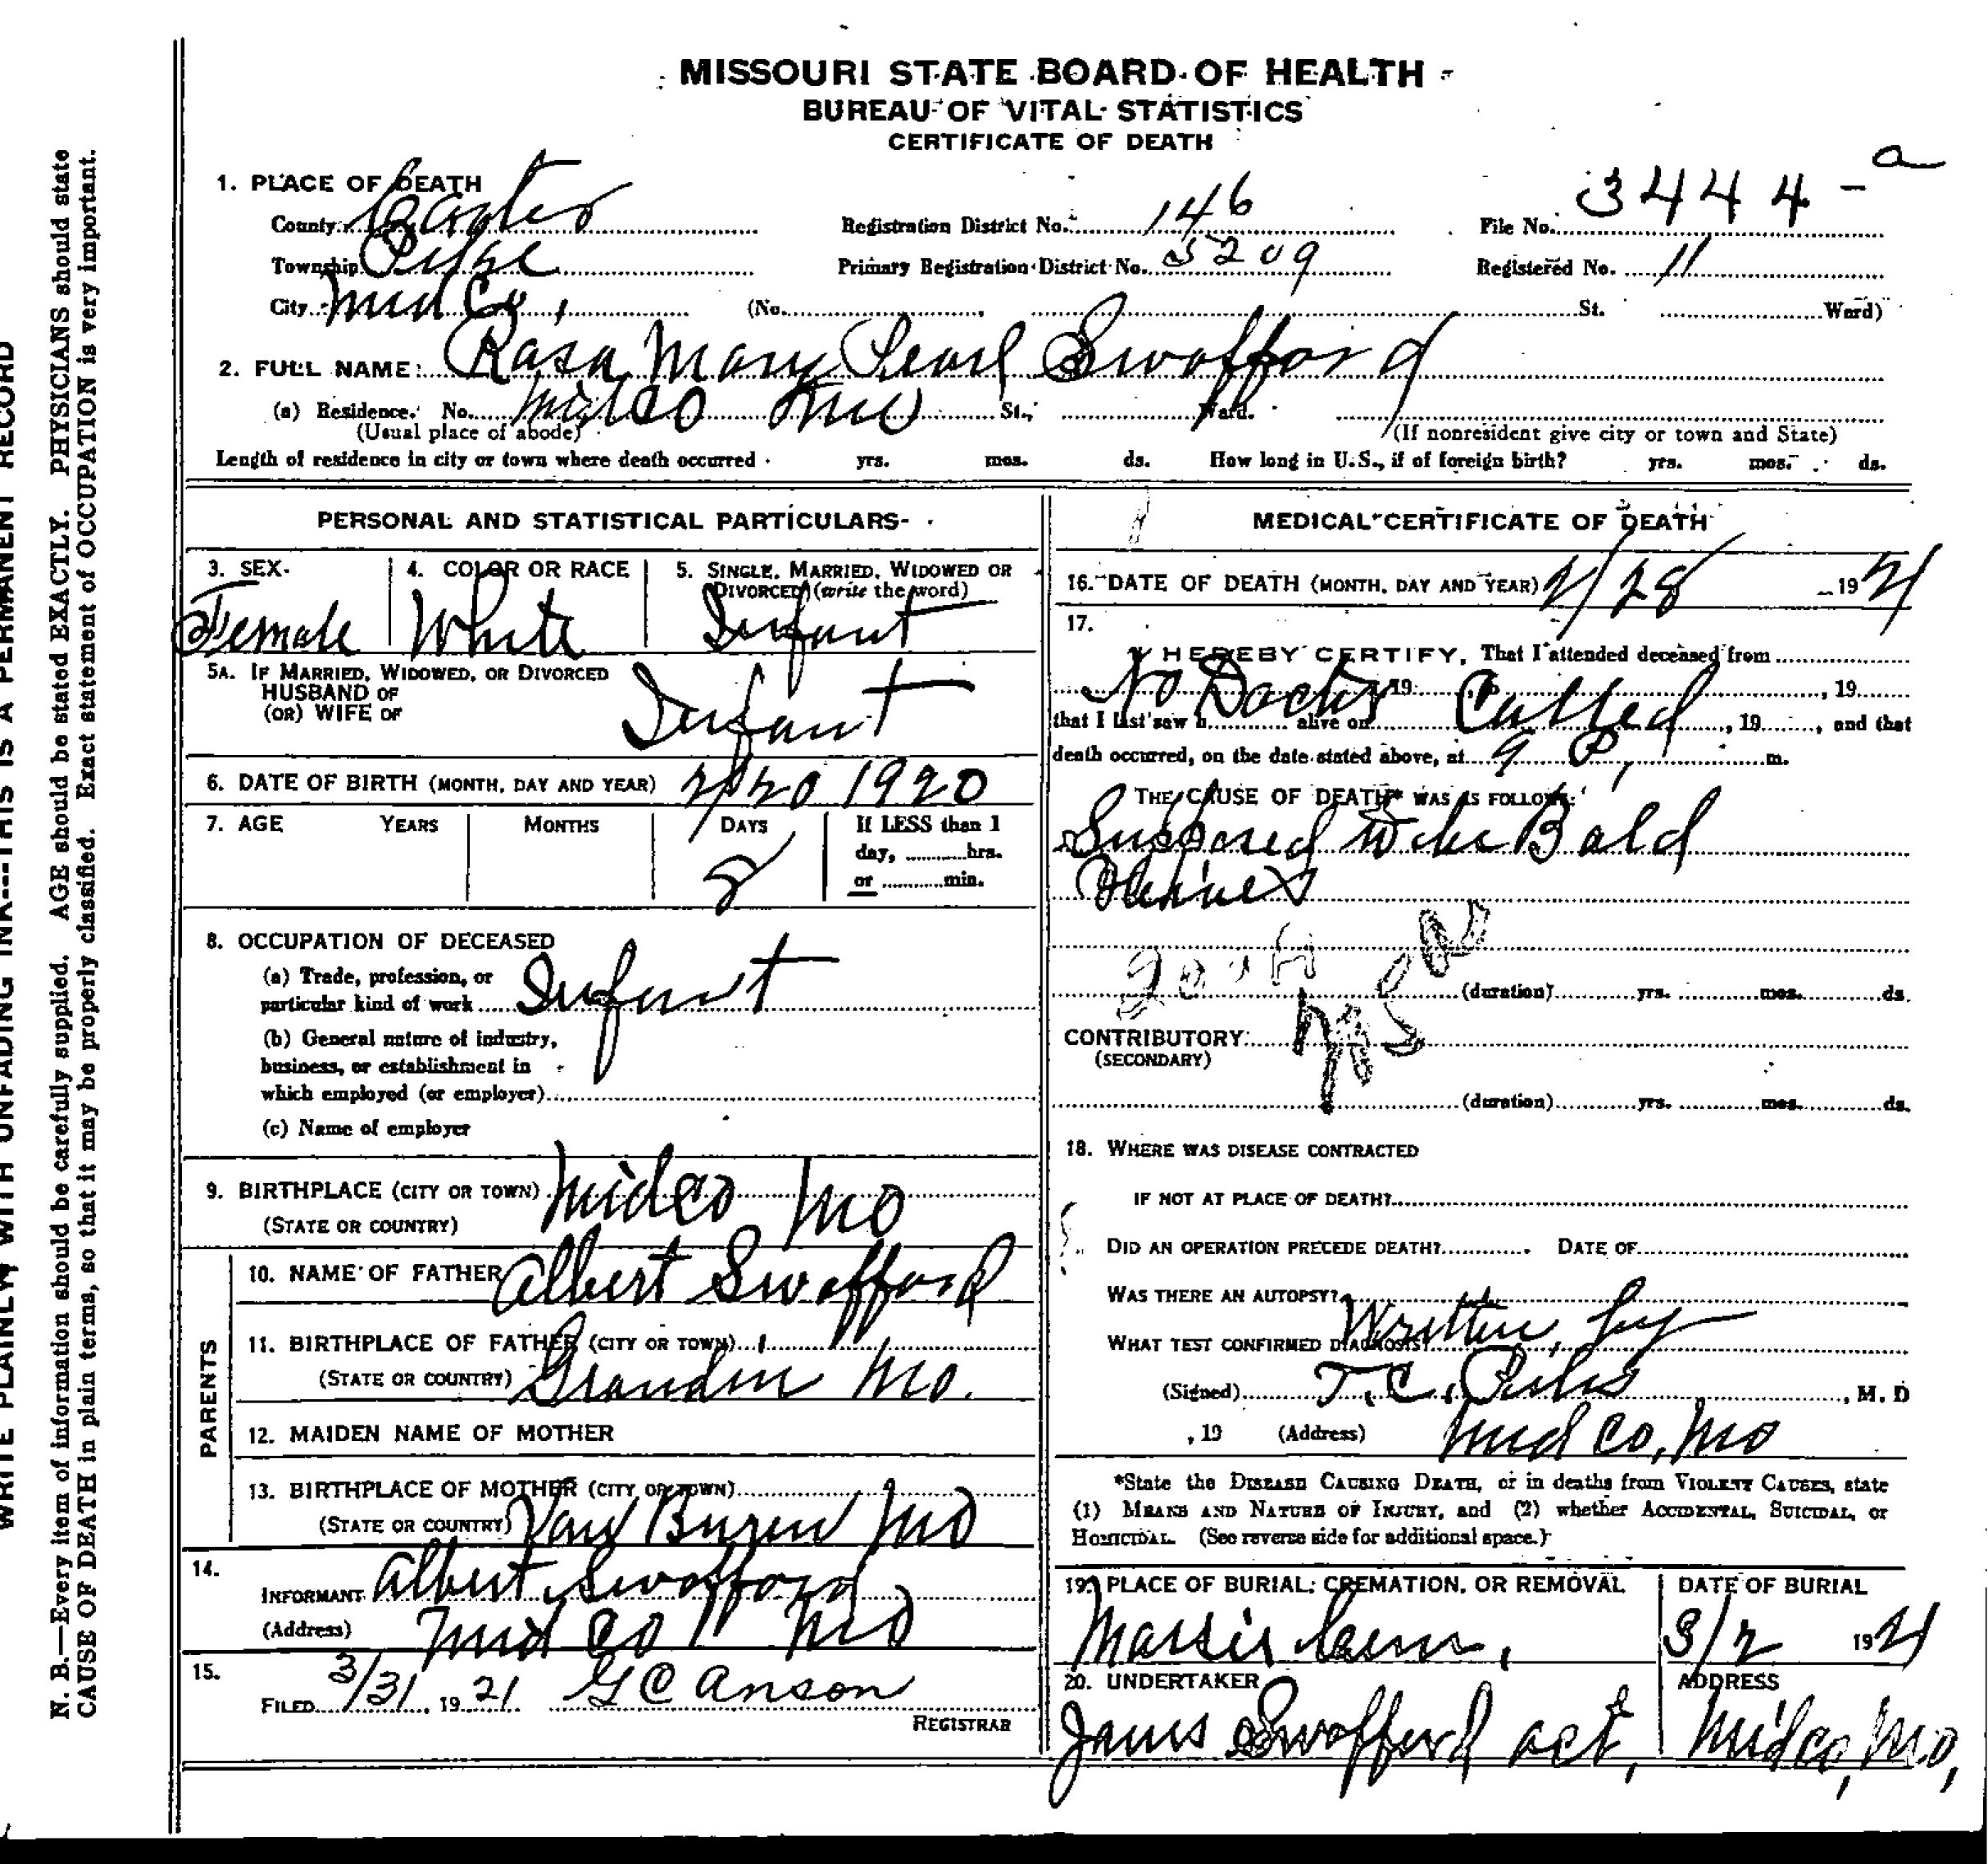 MISSOURI STATE BOARD OF HEALTH
BUREAU OF VITAL STATISTICS
CERTIFICATE OF DEATH
1. PLACE OF DEATH
County Carter Registration District No. 146 File No. 3444-a
Township Pike Primary Registration District No. 5209 Registered No. 11
City Mid Co, (No. St. Ward)
2. FULL NAME Rasa Mary Pearl Swofford
(a) Residence. No. Midco Mo St., Ward.
(Usual place of abode) (If nonresident give city or town and State)
Length of residence in city or town where death occurred yrs. mos. ds. How long in U.S., if of foreign birth? yrs. mos. ds.
PERSONAL AND STATISTICAL PARTICULARS
3. SEX 4. COLOR OR RACE 5. SINGLE, MARRIED, WIDOWED OR DIVORCED (write the word)
Female White Infant
5A. IF MARRIED, WIDOWED, OR DIVORCED
HUSBAND OF
(OR) WIFE OF Infant
6. DATE OF BIRTH (MONTH, DAY AND YEAR) 2/20 1920
7. AGE YEARS MONTHS DAYS If LESS than 1
day, hrs.
or min.
8
8. OCCUPATION OF DECEASED
(a) Trade, profession, or
particular kind of work Infant
(b) General nature of industry,
business, or establishment in
which employed (or employer)
(c) Name of employer
9. BIRTHPLACE (CITY OR TOWN) Midco Mo
(STATE OR COUNTRY)
PARENTS
10. NAME OF FATHER Albert Swofford
11. BIRTHPLACE OF FATHER (CITY OR TOWN)
(STATE OR COUNTRY) Grandin Mo.
12. MAIDEN NAME OF MOTHER
13. BIRTHPLACE OF MOTHER (CITY OR TOWN)
(STATE OR COUNTRY) Van Buren Mo
14.
INFORMANT Albert Swofford
(Address) Mid Co Mo
15.
FILED 3/31, 1921 G C Anson
REGISTRAR
MEDICAL CERTIFICATE OF DEATH
16. DATE OF DEATH (MONTH, DAY AND YEAR) 2/28 1921
17.
I HEREBY CERTIFY, That I attended deceased from
No Doctor, 19 , to Called, 19
that I last saw h alive on , 19 , and that
death occurred, on the date stated above, at 9 P, m.
THE CAUSE OF DEATH* WAS AS FOLLOWS:
Supposed to be Bald
Hives
(duration) yrs. mos. ds.
CONTRIBUTORY
(SECONDARY)
(duration) yrs. mos. ds.
18. WHERE WAS DISEASE CONTRACTED
IF NOT AT PLACE OF DEATH?
DID AN OPERATION PRECEDE DEATH? DATE OF
WAS THERE AN AUTOPSY?
WHAT TEST CONFIRMED DIAGNOSIS? Written by
(Signed) T. C. , M. D
, 19 (Address) Mid Co, Mo
*State the DISEASE CAUSING DEATH, or in deaths from VIOLENT CAUSES, state
(1) MEANS AND NATURE OF INJURY, and (2) whether ACCIDENTAL, SUICIDAL, or
HOMICIDAL. (See reverse side for additional space.)
19. PLACE OF BURIAL, CREMATION, OR REMOVAL DATE OF BURIAL
Cem, 3/2 1921
20. UNDERTAKER ADDRESS
James Swofford act, Midco, Mo,
WRITE PLAINLY WITH UNFADING INK---THIS IS A PERMANENT RECORD
N. B.—Every item of information should be carefully supplied. AGE should be stated EXACTLY. PHYSICIANS should state
CAUSE OF DEATH in plain terms, so that it may be properly classified. Exact statement of OCCUPATION is very important.